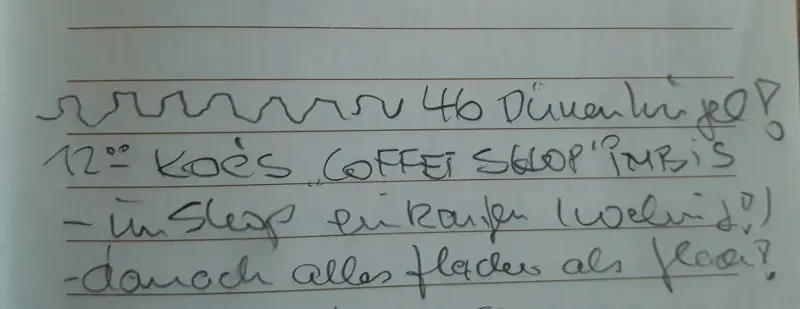 46 Dünenhügel!
12⁰⁰ KOÈS „COFFEI SHOP" IMBIS
- im Shop einkaufen
- danach alles flacher als flach?